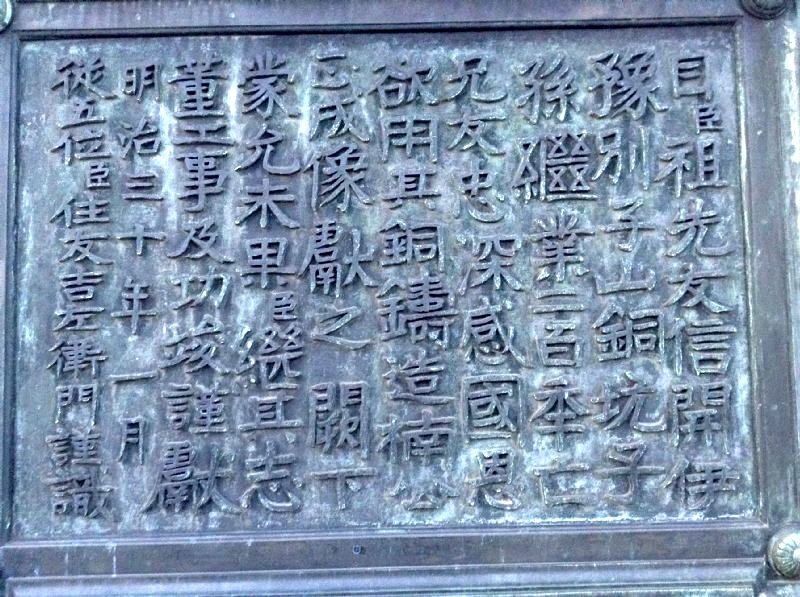 自臣祖先友信開伊
豫別子山銅坑子
孫繼業二百年亡
兄友忠深感國恩
欲用其銅鑄造楠公
正成像獻之　闕下
蒙允未果臣繼其志
董工事及功竣謹獻
明治三十年一月
從五位臣住友吉左衞門謹識